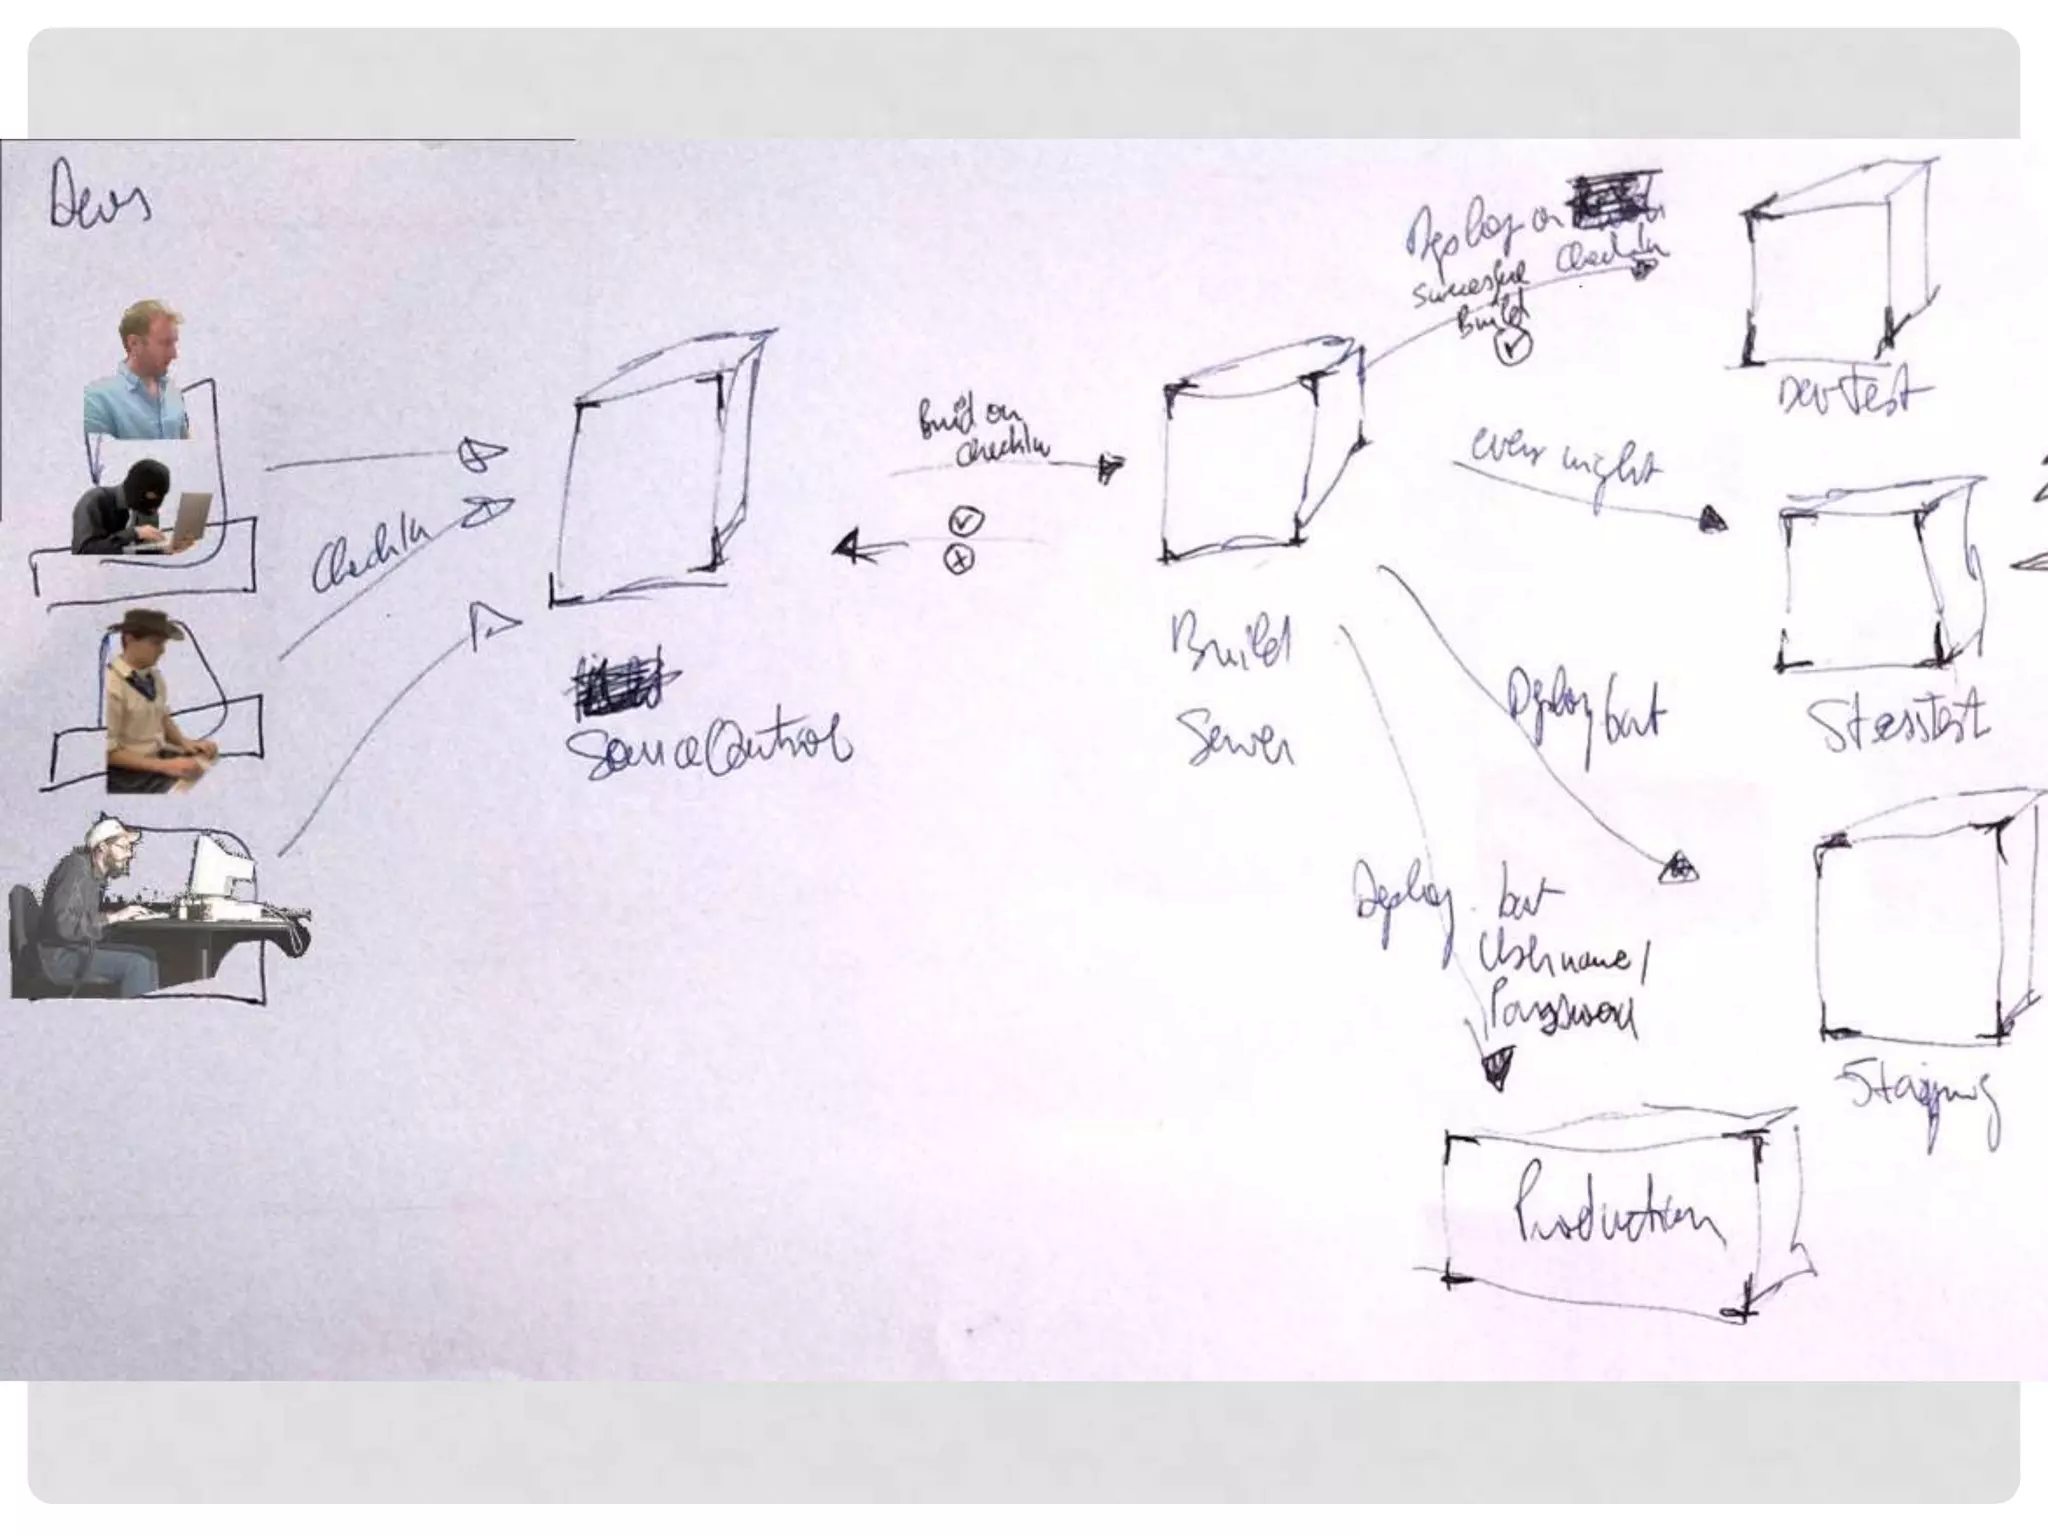 Devs
CheckIn
SourceControl
Build on
CheckIn
Build
Server
Deploy on
CheckIn
successful
Build
DevTest
every night
StressTest
Deploy but
Staging
Deploy. but
Username/
Password
Production